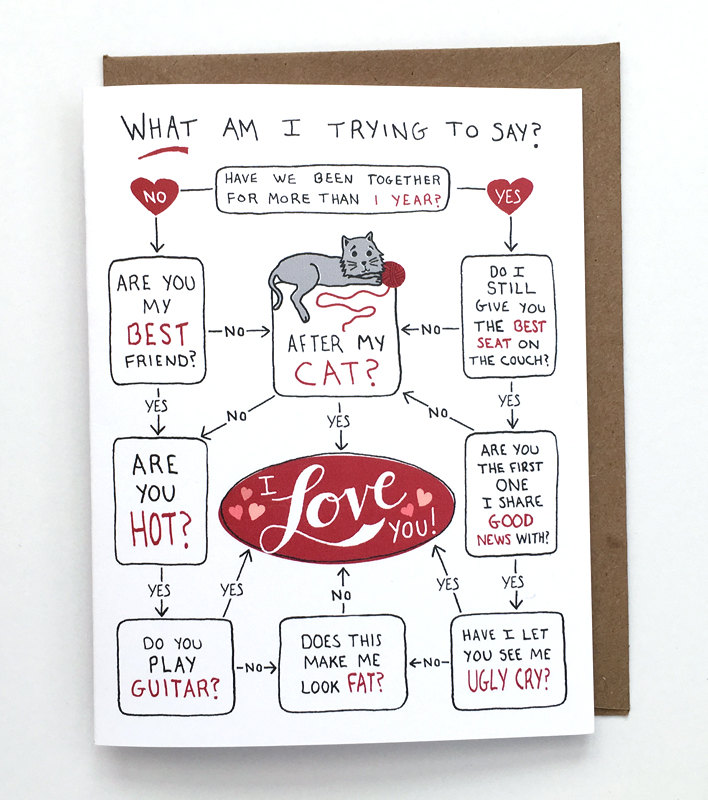 WHAT AM I TRYING TO SAY?
NO
HAVE WE BEEN TOGETHER
FOR MORE THAN 1 YEAR?
YES
ARE YOU
MY
BEST
FRIEND?
NO
AFTER MY
CAT?
NO
DO I
STILL
GIVE YOU
THE BEST
SEAT ON
THE COUCH?
YES
NO
YES
NO
YES
ARE
YOU
HOT?
I Love YOU!
ARE YOU
THE FIRST
ONE
I SHARE
GOOD
NEWS WITH?
YES
YES
NO
YES
YES
DO YOU
PLAY
GUITAR?
NO
DOES THIS
MAKE ME
LOOK FAT?
NO
HAVE I LET
YOU SEE ME
UGLY CRY?